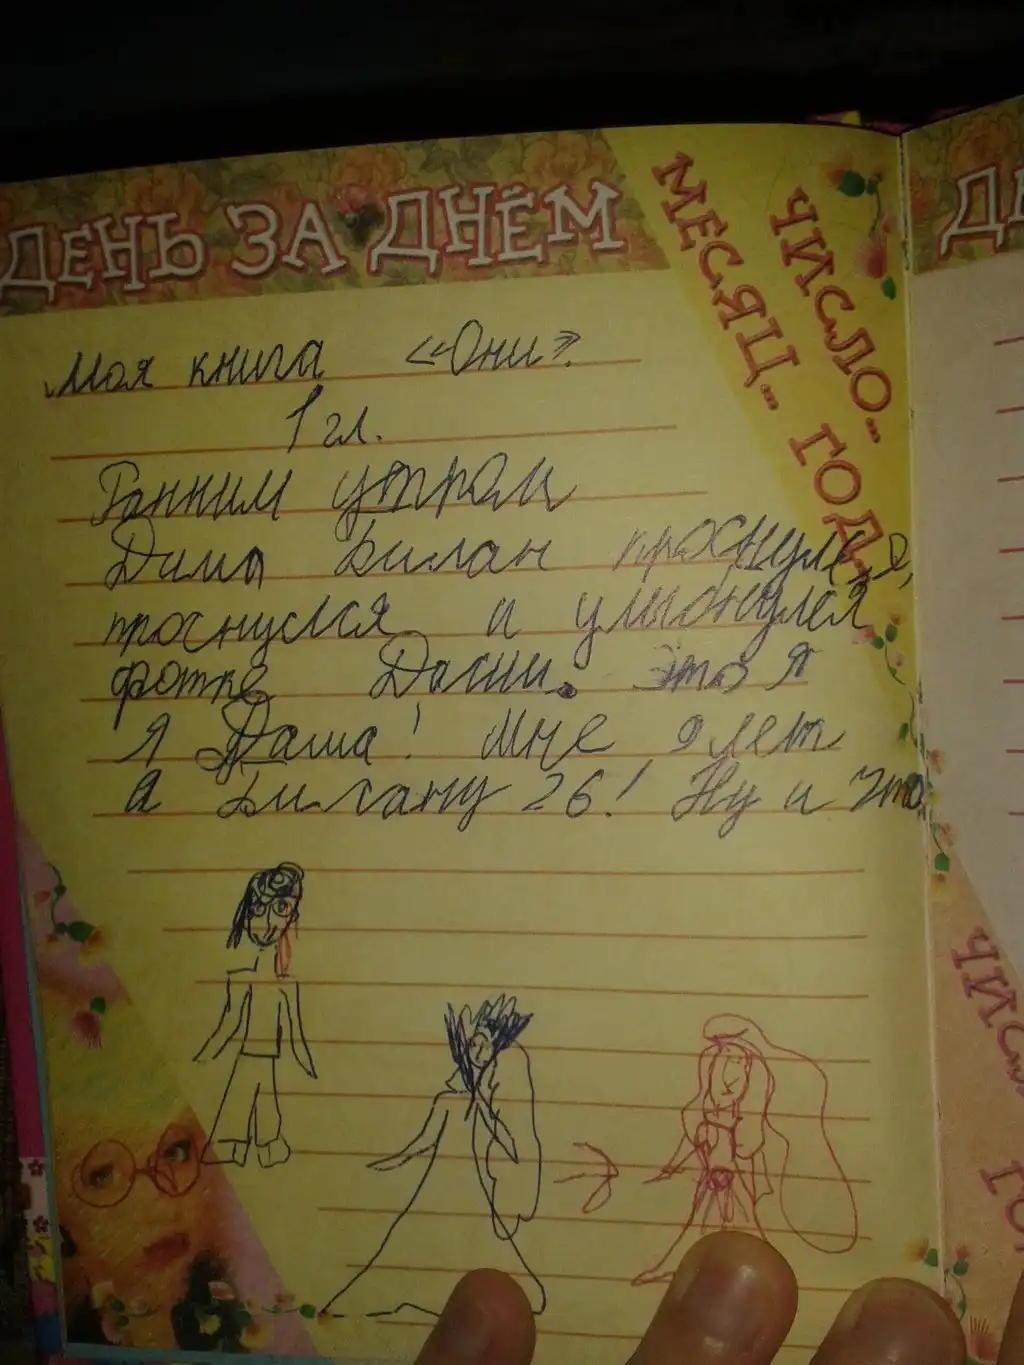 ДЕНЬ ЗА ДНЁМ
ЧИСЛО...
МЕСЯЦ... ГОД...
Моя книга «Они»
1 гл.
Ранним утром
Дима Билан проснулся,
проснулся и улыбнулся
фотке Даши. это я
я Даша! Мне 9 лет
а Билану 26! Ну и что
ЧИС
ГО